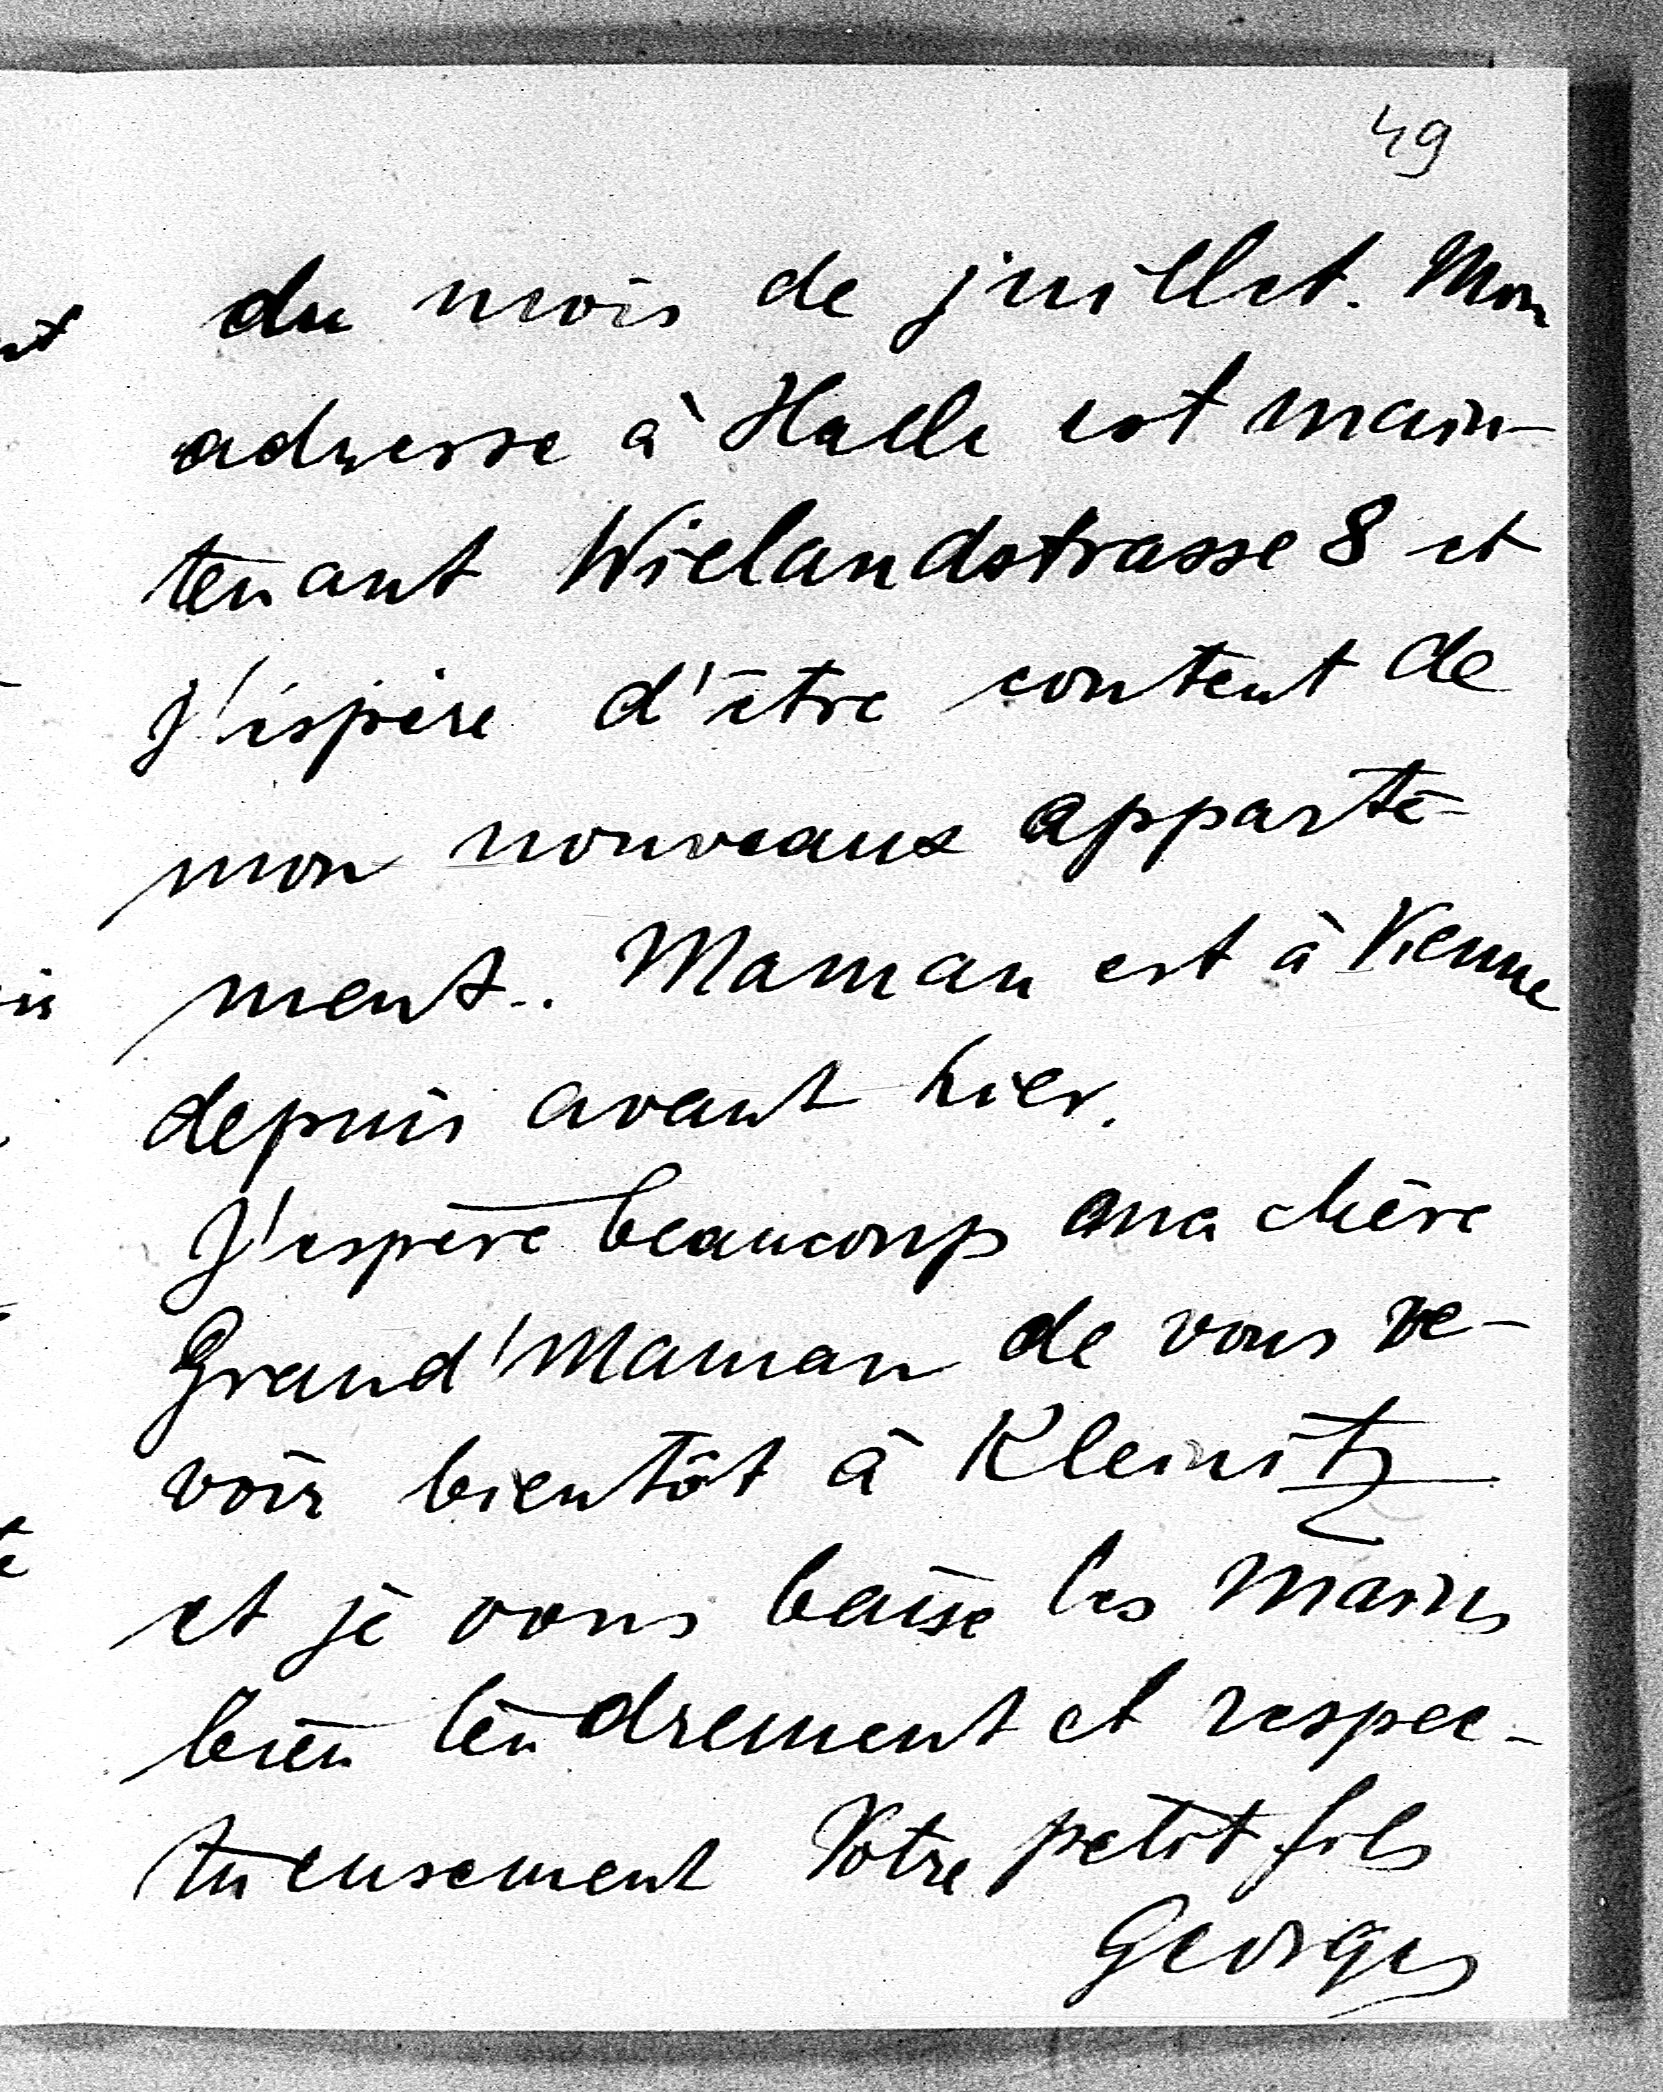 49
du mois de juillet. Mon
adresse à Halle est main-
tenant Wielandstrasse 8 et
J'espère d'être content de
mon nouveaux apparte-
ment.. Maman est à Vienne
depuis avant hier.
J'espère beaucoup ma chère
Grand'Maman de vous re-
voir bientôt à Kleinitz
et je vous baise les mains
bien tendrement et respec-
tueusement Votre petit fils
Georges